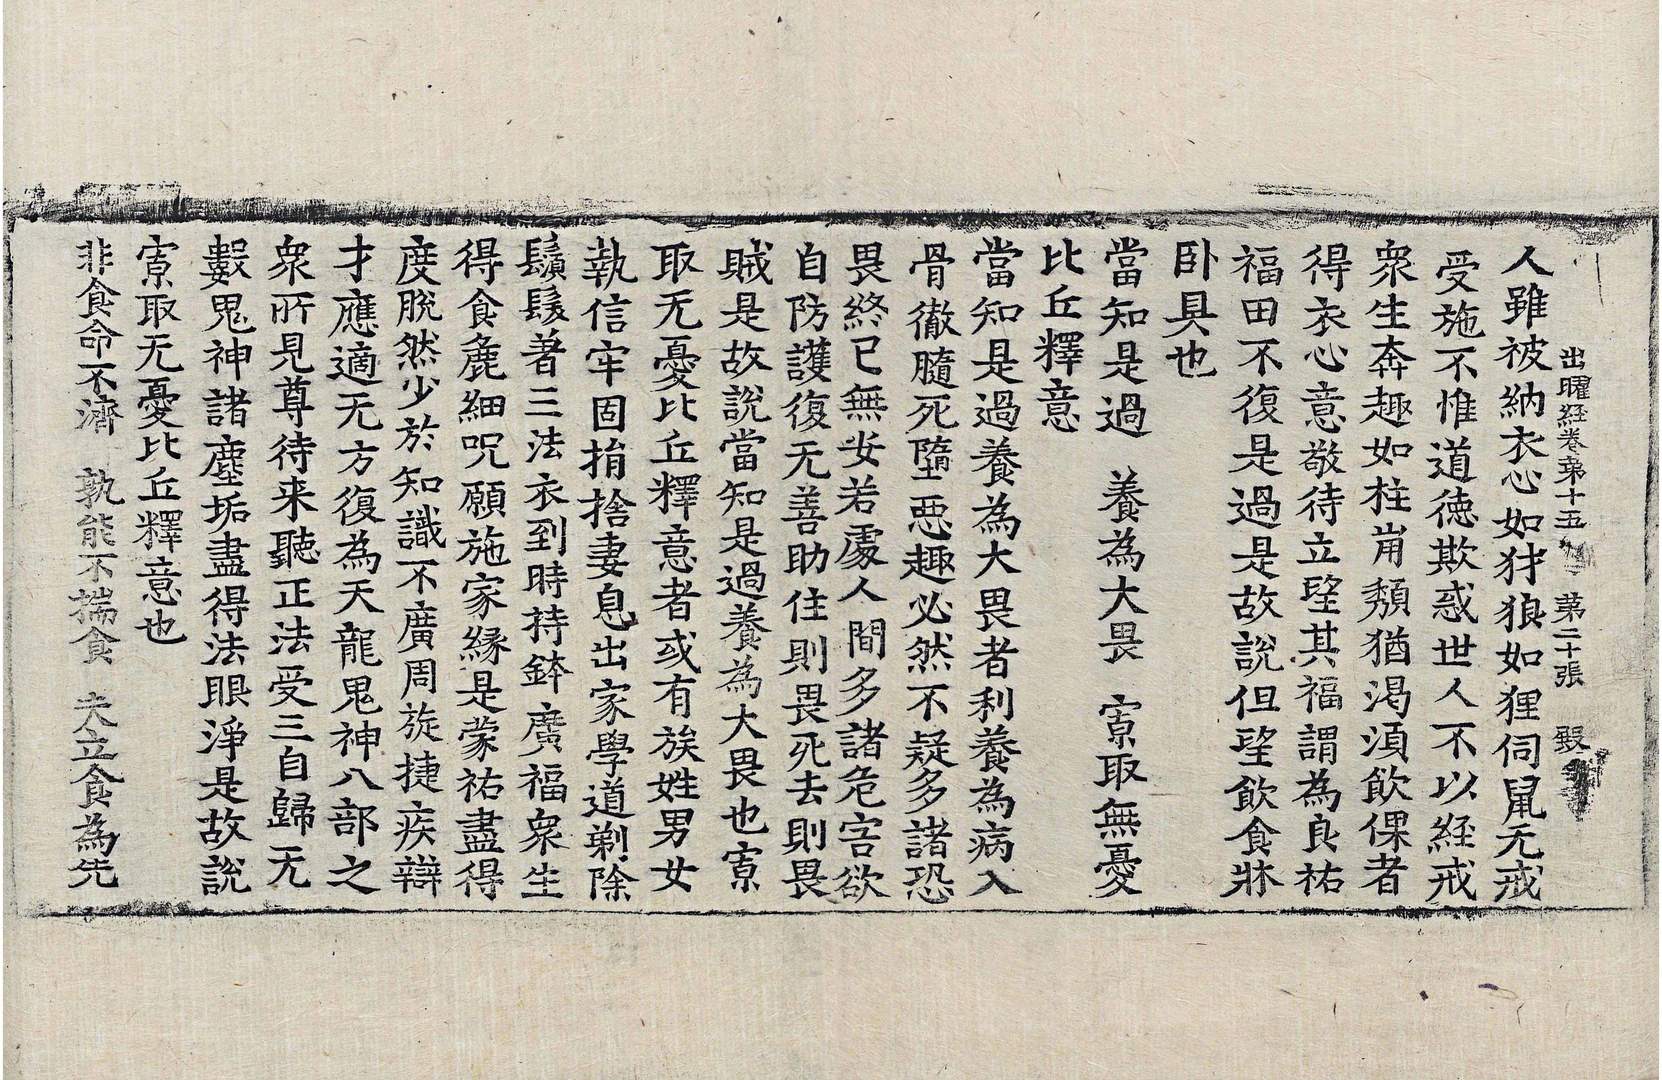 出曜経卷苐十五 第二十張 毀
人雖被納衣心如犲狼如狸伺鼠无戒
受施不惟道德欺惑世人不以経戒
衆生奔趣如柱崩頽猶渇湏飲倮者
得衣心意敬待立望其福謂為良祐
福田不復是過是故說但望飲食牀
卧具也
當知是過 養為大畏 寡取無憂
比丘釋意
當知是過養為大畏者利養為病入
骨徹髓死墮惡趣必然不疑多諸恐
畏終已無安若處人間多諸危害欲
自防護復无善助住則畏死去則畏
賊是故說當知是過養為大畏也寡
取无憂比丘釋意者或有族姓男女
執信牢固捐捨妻息出家學道剃除
鬚髮著三法衣到時持鉢廣福衆生
得食麁細呪願施家縁是蒙祐盡得
度脫然少於知識不廣周旋捷疾辯
才應適无方復為天龍鬼神八部之
衆所見尊待来聽正法受三自歸无
數鬼神諸塵垢盡得法眼淨是故說
寡取无憂比丘釋意也
非食命不濟 孰能不揣食 夫立食為先